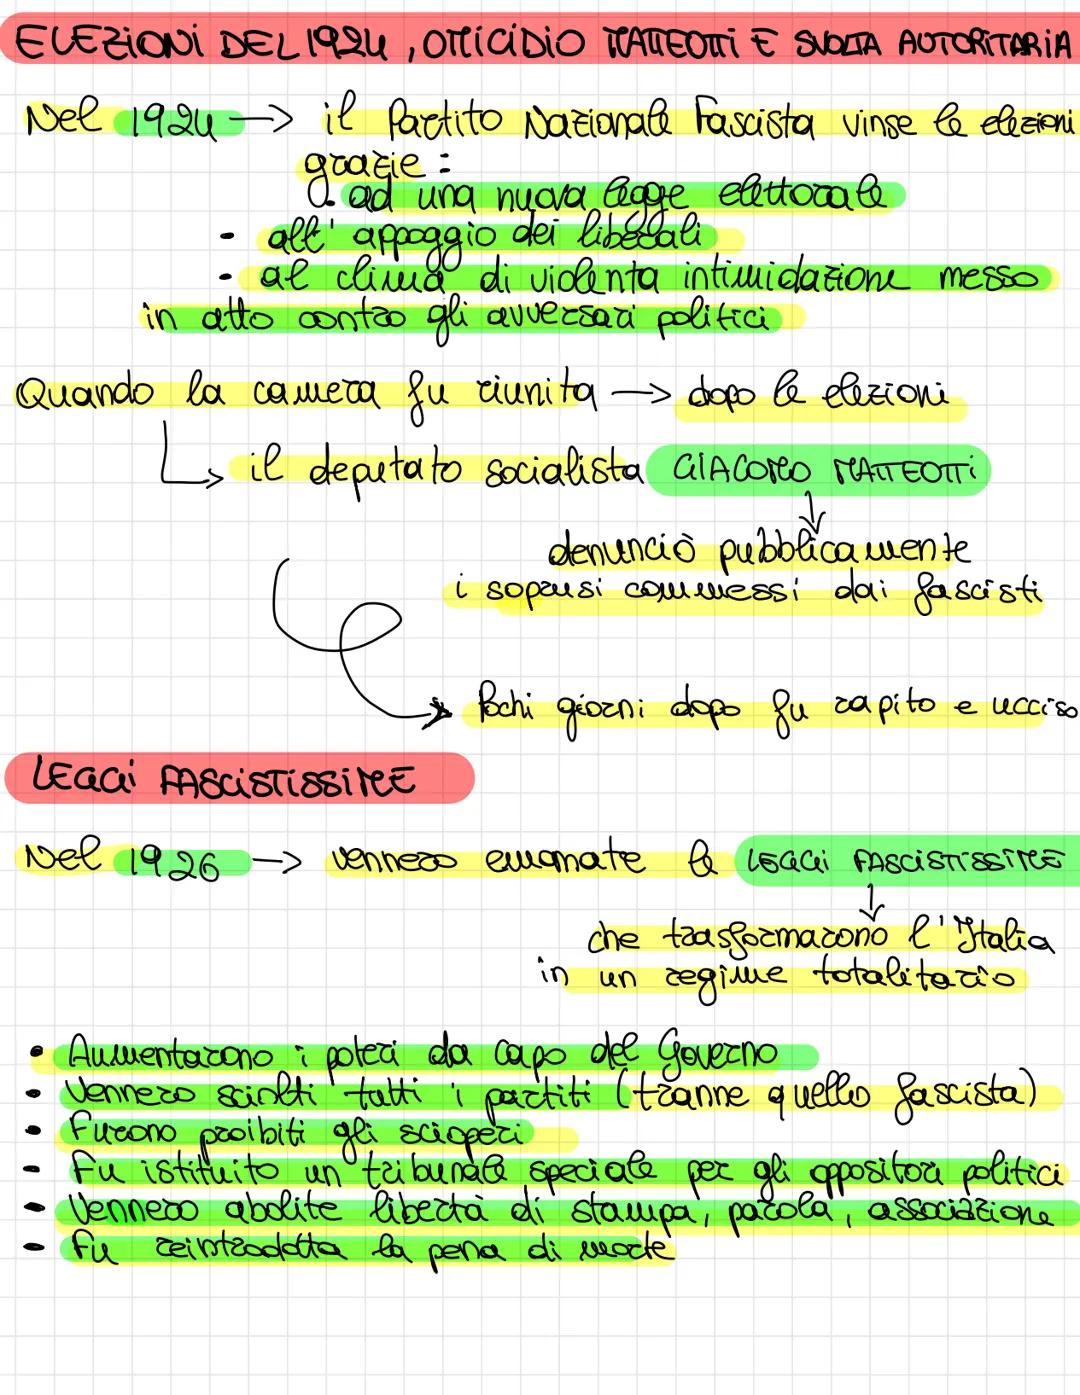 ELEZIONI DEL 1924, OMICIDIO MATTEOTTI E SVOLTA AUTORITARIA
Nel 1924 → il Partito Nazionale Fascista vinse le elezioni
grazie :
. ad una nuova legge elettorale
- all' appoggio dei liberali
- al clima di violenta intimidazione messo
in atto contro gli avversari politici
Quando la camera fu riunita → dopo le elezioni
il deputato socialista GIACOMO MATTEOTTI
denunciò pubblicamente
i soprusi commessi dai fascisti
Pochi giorni dopo fu rapito e ucciso
LEGGI FASCISTISSIME
Nel 1926 → vennero emanate le LEGGI FASCISTISSIME
che trasformarono l'Italia
in un regime totalitario
• Aumentarono i poteri da capo del Governo
• Vennero sciolti tutti i partiti (tranne quello fascista)
• Furono proibiti gli scioperi
• Fu istituito un tribunale speciale per gli oppositori politici
• Vennero abolite libertà di stampa, parola, associazione
• Fu reintrodotta la pena di morte